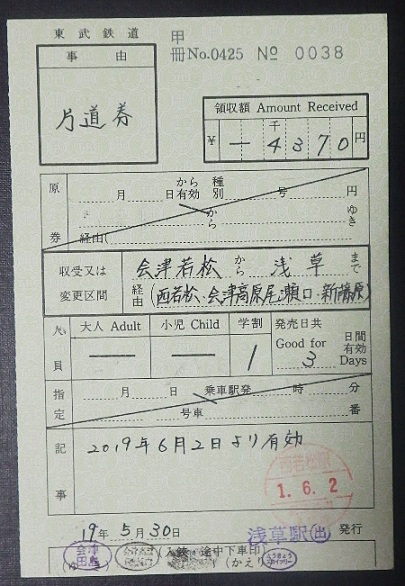 東武鉄道
甲
冊No.0425 № 0038
事由
片道券
領収額 Amount Received
千
¥ ー 4370 円
原券
から 種
月 日有効 別 号 円
から ゆき
経由(
収受又は
変更区間
会津若松 から 浅草 まで
経由 (西若松・会津高原尾瀬口・新藤原)
人員
大人 Adult 小児 Child 学割 発売日共
Good for 日間有効
ー ー 1 3 Days
指定
月 日 乗車駅発 時 分
号車 番
記事
2019年6月2日より有効
1.6.2
19年5月30日 浅草駅(出) 発行
会津田島
(入鋏・途中下車印)
(ゆき) (かえり)